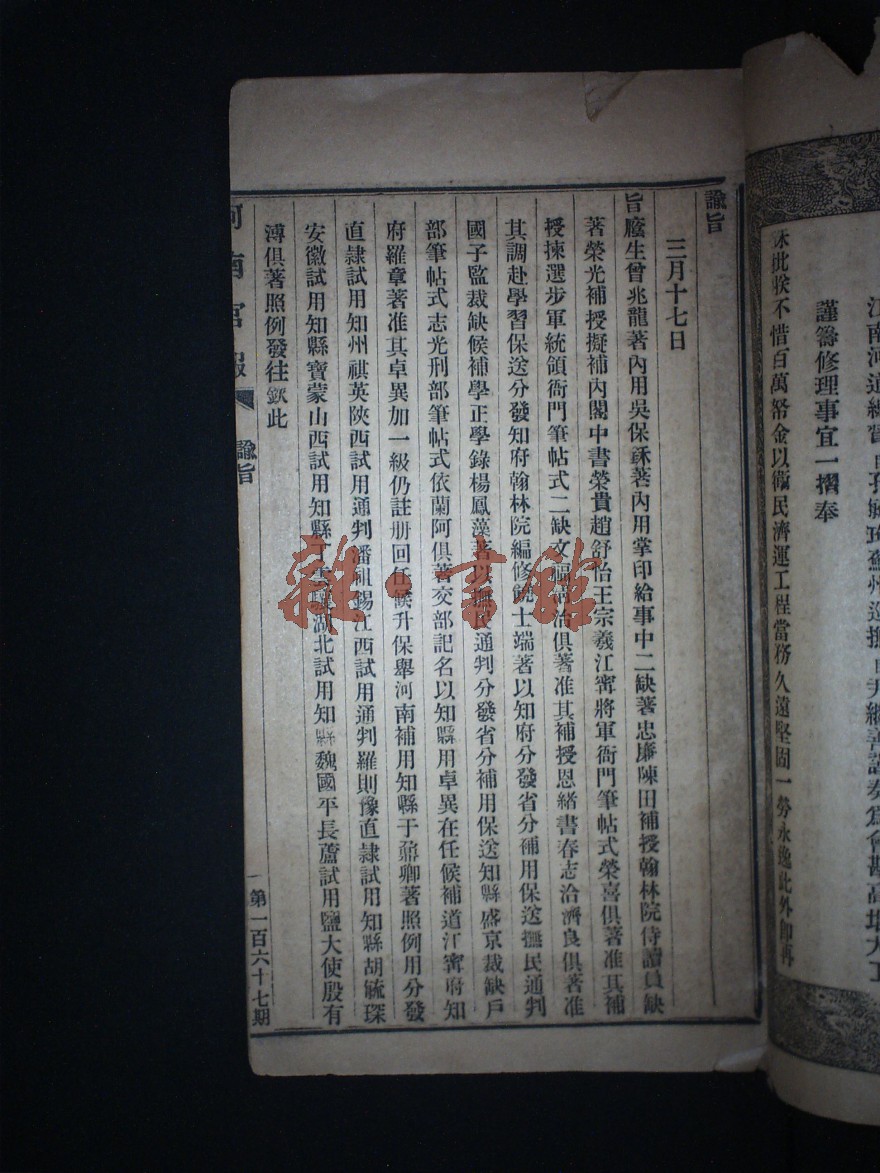 江南河道總督
謹籌修理事宜一摺奉
硃批朕不惜百萬帑金以衛民濟運工程當務久遠堅固一勞永逸此外即再
諭旨
三月十七日
旨廕生曾兆龍著內用吳保龢著內用掌印給事中二缺著忠廉陳田補授翰林院侍讀員缺
著榮光補授擬補內閣中書榮貴趙舒怡王宗羲江甯將軍衙門筆帖式榮喜俱著准其補
授揀選步軍統領衙門筆帖式二缺文福喜治俱著准其補授恩緒書春志洽濟良俱著准
其調赴學習保送分發知府翰林院編修饒士端著以知府分發省分補用保送撫民通判
國子監裁缺候補學正學錄楊鳳藻著以撫民通判分發省分補用保送知縣盛京裁缺戶
部筆帖式志光刑部筆帖式依蘭阿俱著交部記名以知縣用卓異在任候補道江甯府知
府羅章著准其卓異加一級仍註册回任候升保舉河南補用知縣于鼐卿著照例用分發
直隸試用知州祺英陝西試用通判潘祖錫江西試用通判羅則豫直隸試用知縣胡毓琛
安徽試用知縣寶蒙山西試用知縣丁 湖北試用知縣魏國平長蘆試用鹽大使殷有
溥俱著照例發往欽此
河南官報
諭旨
一
第一百六十七期
雜·書館